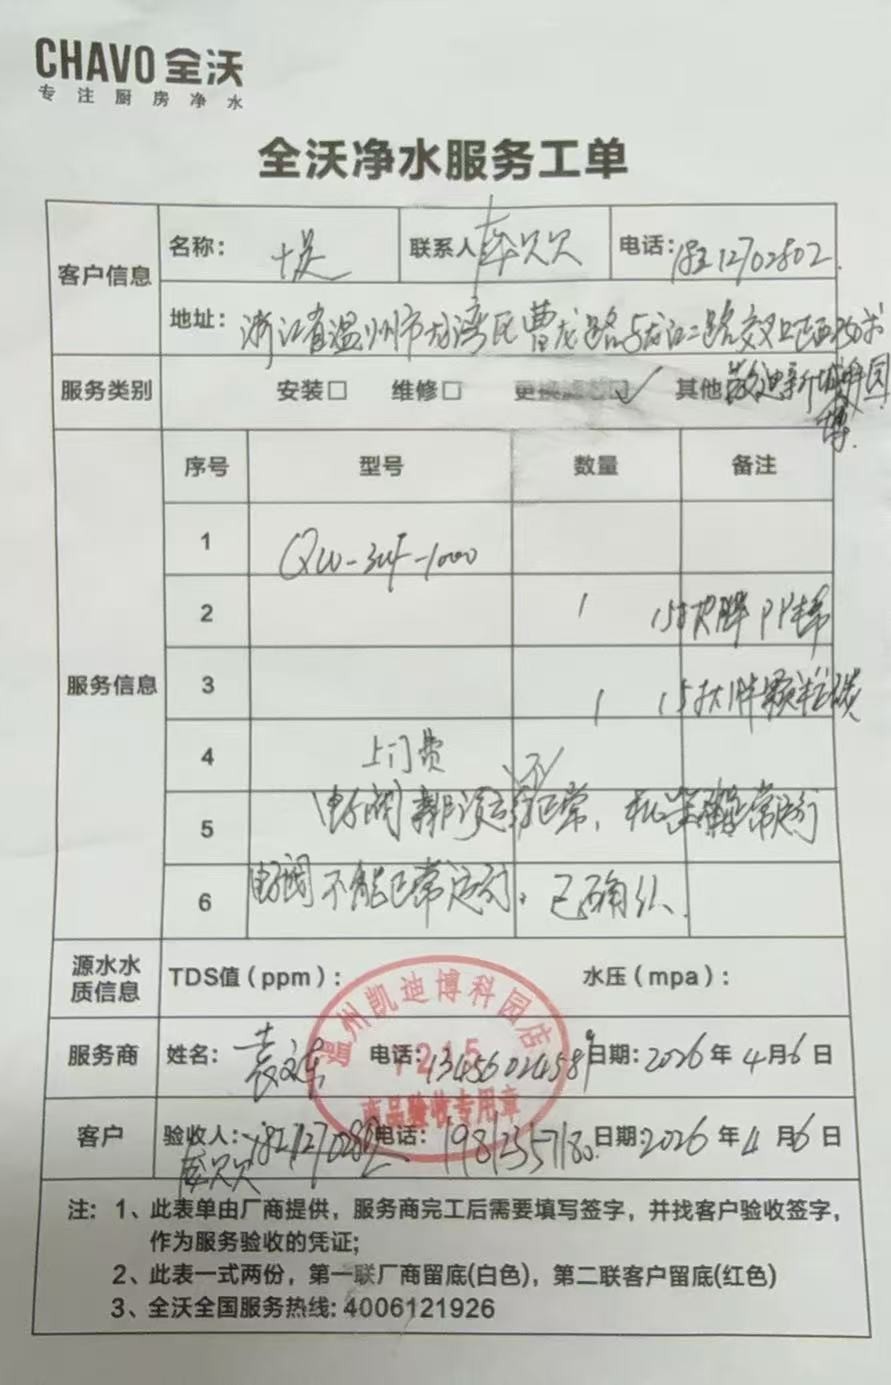 CHAVO 全沃
专注厨房净水
全沃净水服务工单
客户信息
名称：
联系人 贝贝
电话：
地址：浙江省温州市龙湾区曹龙路与龙江二路交叉
服务类别 安装□ 维修□ 更换滤芯☑ 其他
服务信息
序号 型号 数量 备注
1 QW-3UF-1000
2 1 15寸 胖PP棉
3 1 15寸大胖颗粒碳
4 上门费
5 正常，机器 正常运行
6 电磁阀不能正常运行。已确认
源水水质信息 TDS值（ppm）： 水压（mpa）：
温州凯迪博科园店
7215
商品验收专用章
服务商 姓名： 电话：13456024589 日期：2026年4月6日
客户 验收人： 贝贝 电话： 日期：2026年4月6日
注：1、此表单由厂商提供，服务商完工后需要填写签字，并找客户验收签字，
作为服务验收的凭证；
2、此表一式两份，第一联厂商留底(白色)，第二联客户留底(红色)
3、全沃全国服务热线：4006121926